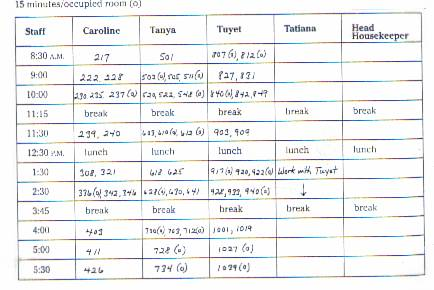 15 minutes/occupied room (o)
Staff Caroline Tanya Tuyet Tatiana Head Housekeeper
8:30 A.M. 217 501 807(o), 812(o)
9:00 222, 228 502(o), 505, 511(o) 827, 831
10:00 230, 235, 237(o) 520, 522, 548(o) 840(o), 842, 849
11:15 break break break break break
11:30 239, 240 603, 610(o), 612(o) 903, 909
12:30 P.M. lunch lunch lunch lunch lunch
1:30 308, 321 618, 625 917(o), 920, 922(o) Work with Tuyet
2:30 336(o), 342, 346 628(o), 630, 641 928, 933, 940(o) ↓
3:45 break break break break break
4:00 403 700(o), 703, 712(o) 1001, 1019
5:00 411 728(o) 1027(o)
5:30 426 734(o) 1039(o)